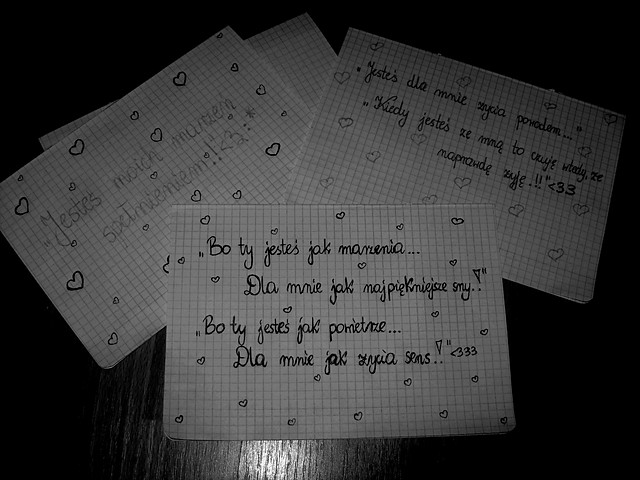 „Jesteś moich marzeń
spełnieniem!!<3:*
„Jesteś dla mnie życia powodem..."
„Kiedy jesteś ze mną to czuję wtedy, że
naprawdę żyję.!!!"<33
„Bo ty jesteś jak marzenia...
Dla mnie jak najpiękniejsze sny.!"
„Bo ty jesteś jak powietrze...
Dla mnie jak życia sens.!"<333